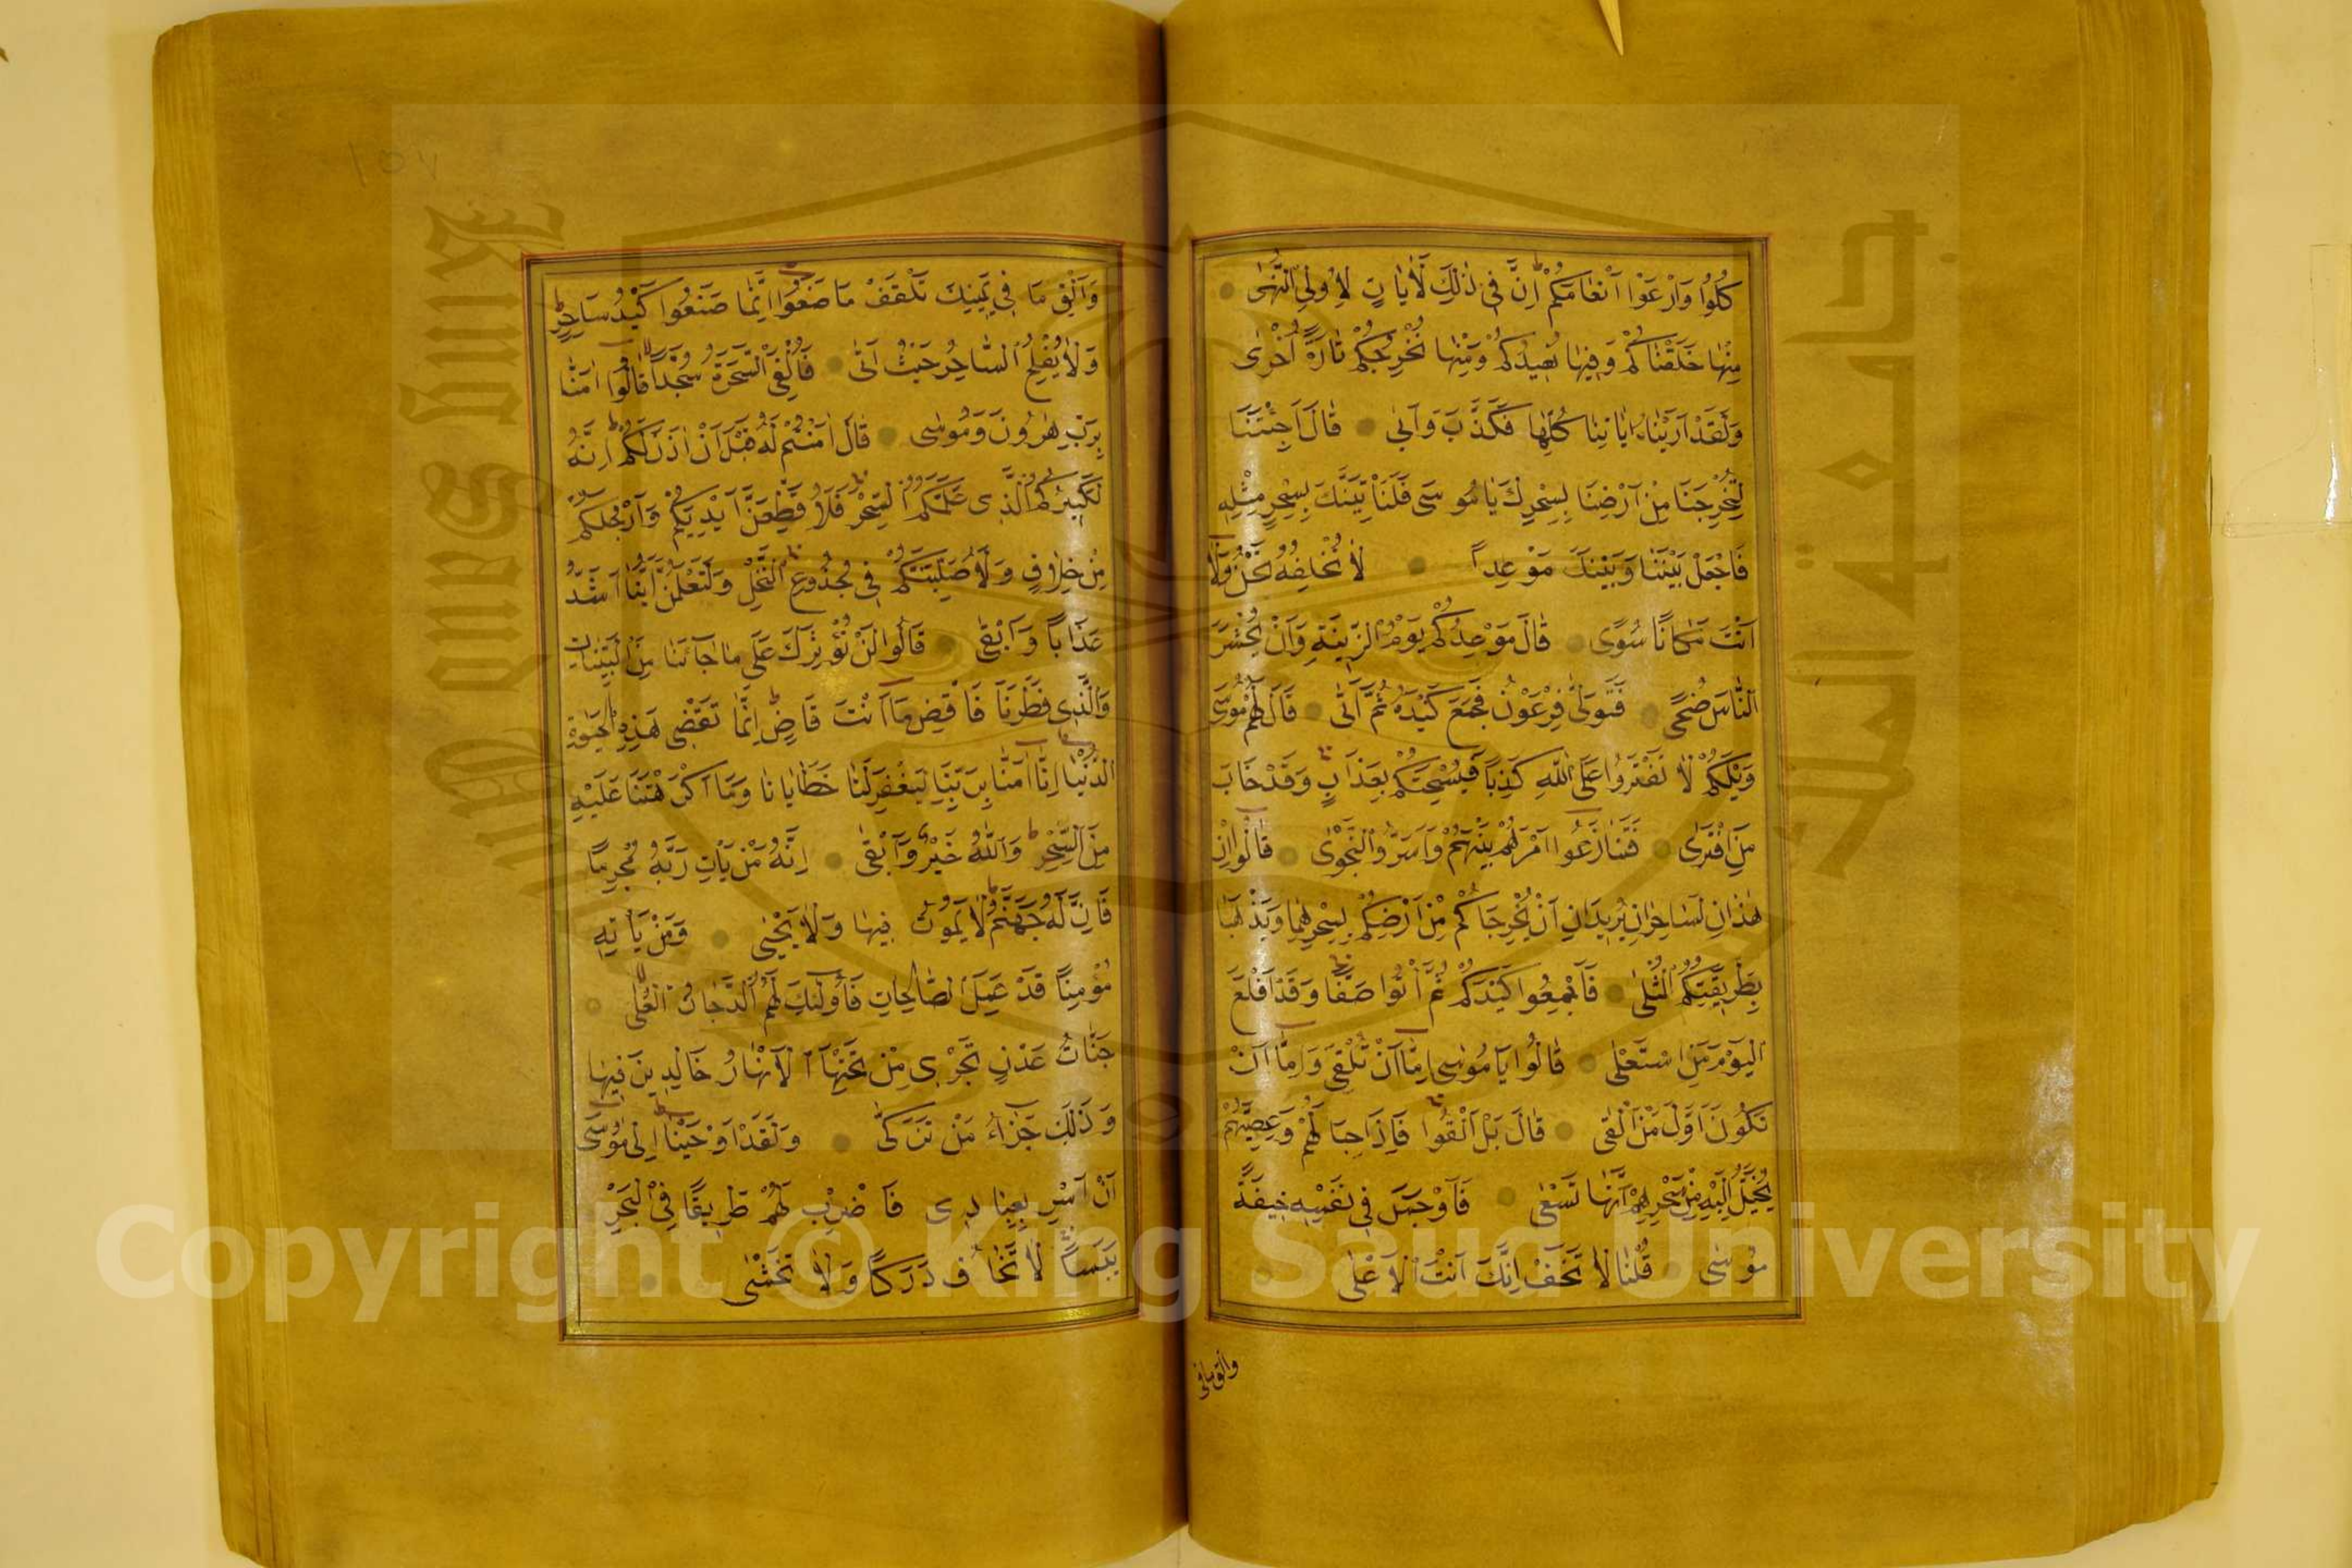 كُلُوا وَارْعَوْا اَنْعَامَكُمْ اِنَّ فِي ذٰلِكَ لَاٰيَاتٍ لِاُولِي النُّهٰى
مِنْهَا خَلَقْنَاكُمْ وَفِيهَا نُعِيدُكُمْ وَمِنْهَا نُخْرِجُكُمْ تَارَةً اُخْرٰى
وَلَقَدْ اَرَيْنَاهُ اٰيَاتِنَا كُلَّهَا فَكَذَّبَ وَاَبٰى قَالَ اَجِئْتَنَا
لِتُخْرِجَنَا مِنْ اَرْضِنَا بِسِحْرِكَ يَا مُوسٰى فَلَنَاْتِيَنَّكَ بِسِحْرٍ مِثْلِهِ
فَاجْعَلْ بَيْنَنَا وَبَيْنَكَ مَوْعِداً لَا نُخْلِفُهُ نَحْنُ وَلَا
اَنْتَ مَكَانًا سُوًى قَالَ مَوْعِدُكُمْ يَوْمُ الزِّينَةِ وَاَنْ يُحْشَرَ
النَّاسُ ضُحًى فَتَوَلّٰى فِرْعَوْنُ فَجَمَعَ كَيْدَهُ ثُمَّ اَتٰى قَالَ لَهُمْ مُوسٰى
وَيْلَكُمْ لَا تَفْتَرُوا عَلَى اللّٰهِ كَذِبًا فَيُسْحِتَكُمْ بِعَذَابٍ وَقَدْ خَابَ
مَنِ افْتَرٰى فَتَنَازَعُوا اَمْرَهُمْ بَيْنَهُمْ وَاَسَرُّوا النَّجْوٰى قَالُوا اِنْ
هٰذَانِ لَسَاحِرَانِ يُرِيدَانِ اَنْ يُخْرِجَاكُمْ مِنْ اَرْضِكُمْ بِسِحْرِهِمَا وَيَذْهَبَا
بِطَرِيقَتِكُمُ الْمُثْلٰى فَاَجْمِعُوا كَيْدَكُمْ ثُمَّ اْتُوا صَفًّا وَقَدْ اَفْلَحَ
الْيَوْمَ مَنِ اسْتَعْلٰى قَالُوا يَا مُوسٰى اِمَّا اَنْ تُلْقِيَ وَاِمَّا اَنْ
نَكُونَ اَوَّلَ مَنْ اَلْقٰى قَالَ بَلْ اَلْقُوا فَاِذَا حِبَالُهُمْ وَعِصِيُّهُمْ
يُخَيَّلُ اِلَيْهِ مِنْ سِحْرِهِمْ اَنَّهَا تَسْعٰى فَاَوْجَسَ فِي نَفْسِهِ خِيفَةً
مُوسٰى قُلْنَا لَا تَخَفْ اِنَّكَ اَنْتَ الْاَعْلٰى
والق ما في
١٥٧
وَاَلْقِ مَا فِي يَمِينِكَ تَلْقَفْ مَا صَنَعُوا اِنَّمَا صَنَعُوا كَيْدُ سَاحِرٍ
وَلَا يُفْلِحُ السَّاحِرُ حَيْثُ اَتٰى فَاُلْقِيَ السَّحَرَةُ سُجَّدًا قَالُوا اٰمَنَّا
بِرَبِّ هٰرُونَ وَمُوسٰى قَالَ اٰمَنْتُمْ لَهُ قَبْلَ اَنْ اٰذَنَ لَكُمْ اِنَّهُ
لَكَبِيرُكُمُ الَّذِي عَلَّمَكُمُ السِّحْرَ فَلَاُقَطِّعَنَّ اَيْدِيَكُمْ وَاَرْجُلَكُمْ
مِنْ خِلَافٍ وَلَاُصَلِّبَنَّكُمْ فِي جُذُوعِ النَّخْلِ وَلَتَعْلَمُنَّ اَيُّنَا اَشَدُّ
عَذَابًا وَاَبْقٰى قَالُوا لَنْ نُؤْثِرَكَ عَلٰى مَا جَآءَنَا مِنَ الْبَيِّنَاتِ
وَالَّذِي فَطَرَنَا فَاقْضِ مَا اَنْتَ قَاضٍ اِنَّمَا تَقْضِي هٰذِهِ الْحَيٰوةَ
الدُّنْيَا اِنَّا اٰمَنَّا بِرَبِّنَا لِيَغْفِرَ لَنَا خَطَايَانَا وَمَا اَكْرَهْتَنَا عَلَيْهِ
مِنَ السِّحْرِ وَاللّٰهُ خَيْرٌ وَاَبْقٰى اِنَّهُ مَنْ يَاْتِ رَبَّهُ مُجْرِمًا
فَاِنَّ لَهُ جَهَنَّمَ لَا يَمُوتُ فِيهَا وَلَا يَحْيٰى وَمَنْ يَاْتِهِ
مُؤْمِنًا قَدْ عَمِلَ الصَّالِحَاتِ فَاُولٰئِكَ لَهُمُ الدَّرَجَاتُ الْعُلٰى
جَنَّاتُ عَدْنٍ تَجْرِي مِنْ تَحْتِهَا الْاَنْهَارُ خَالِدِينَ فِيهَا
وَذٰلِكَ جَزَاءُ مَنْ تَزَكّٰى وَلَقَدْ اَوْحَيْنَا اِلٰى مُوسٰى
اَنْ اَسْرِ بِعِبَادِي فَاضْرِبْ لَهُمْ طَرِيقًا فِي الْبَحْرِ
يَبَسًا لَا تَخَافُ دَرَكًا وَلَا تَخْشٰى
King Saud University
جامعة الملك سعود
Copyright © King Saud University